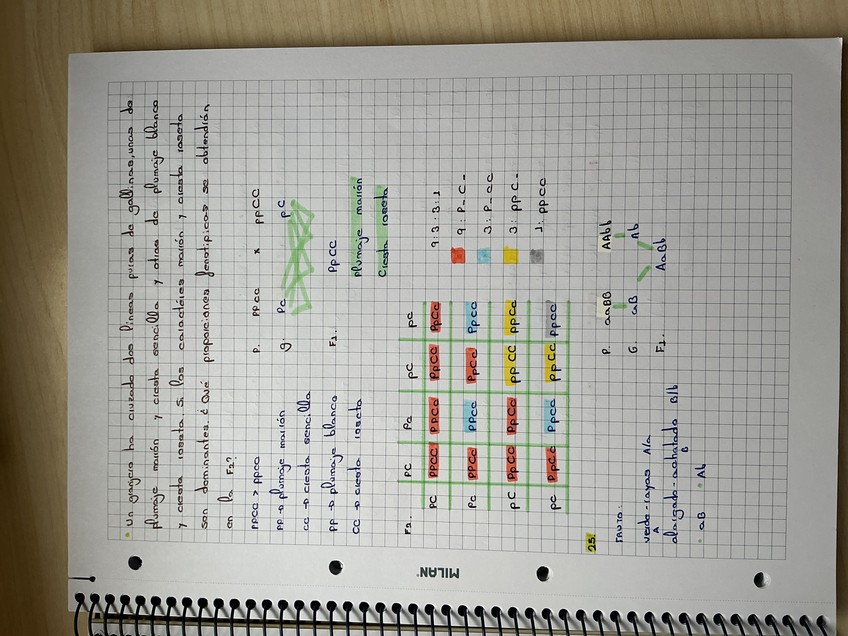 Un granjero ha cruzado dos líneas puras de gallinas, unas de
plumaje marrón y cresta sencilla y otras de plumaje blanco
y cresta roseta. Si los caractéres marrón y cresta roseta
son dominantes. ¿Qué proporciones fenotípicas se obtendrán
en la F2?
PPCC > ppcc
PP → plumaje marrón
cc → cresta sencilla
pp → plumaje blanco
CC → cresta roseta
P. PPcc x ppCC
g. Pc pC
F1. PpCc
plumaje marrón
Cresta roseta
F2.
PC Pc pC pc
PC PPCC PPCc PpCC PpCc
Pc PPCc PPcc PpCc Ppcc
pC PpCC PpCc ppCC ppCc
pc PpCc Ppcc ppCc ppcc
9:3:3:1
9: P_C_
3: P_cc
3: ppC_
1: ppcc
25.
FRUTO:
verde - rayas A/a
A
alargado - achatado B/b
B
aB Ab
P. aaBB AAbb
G. aB Ab
F1. AaBb
MILAN®